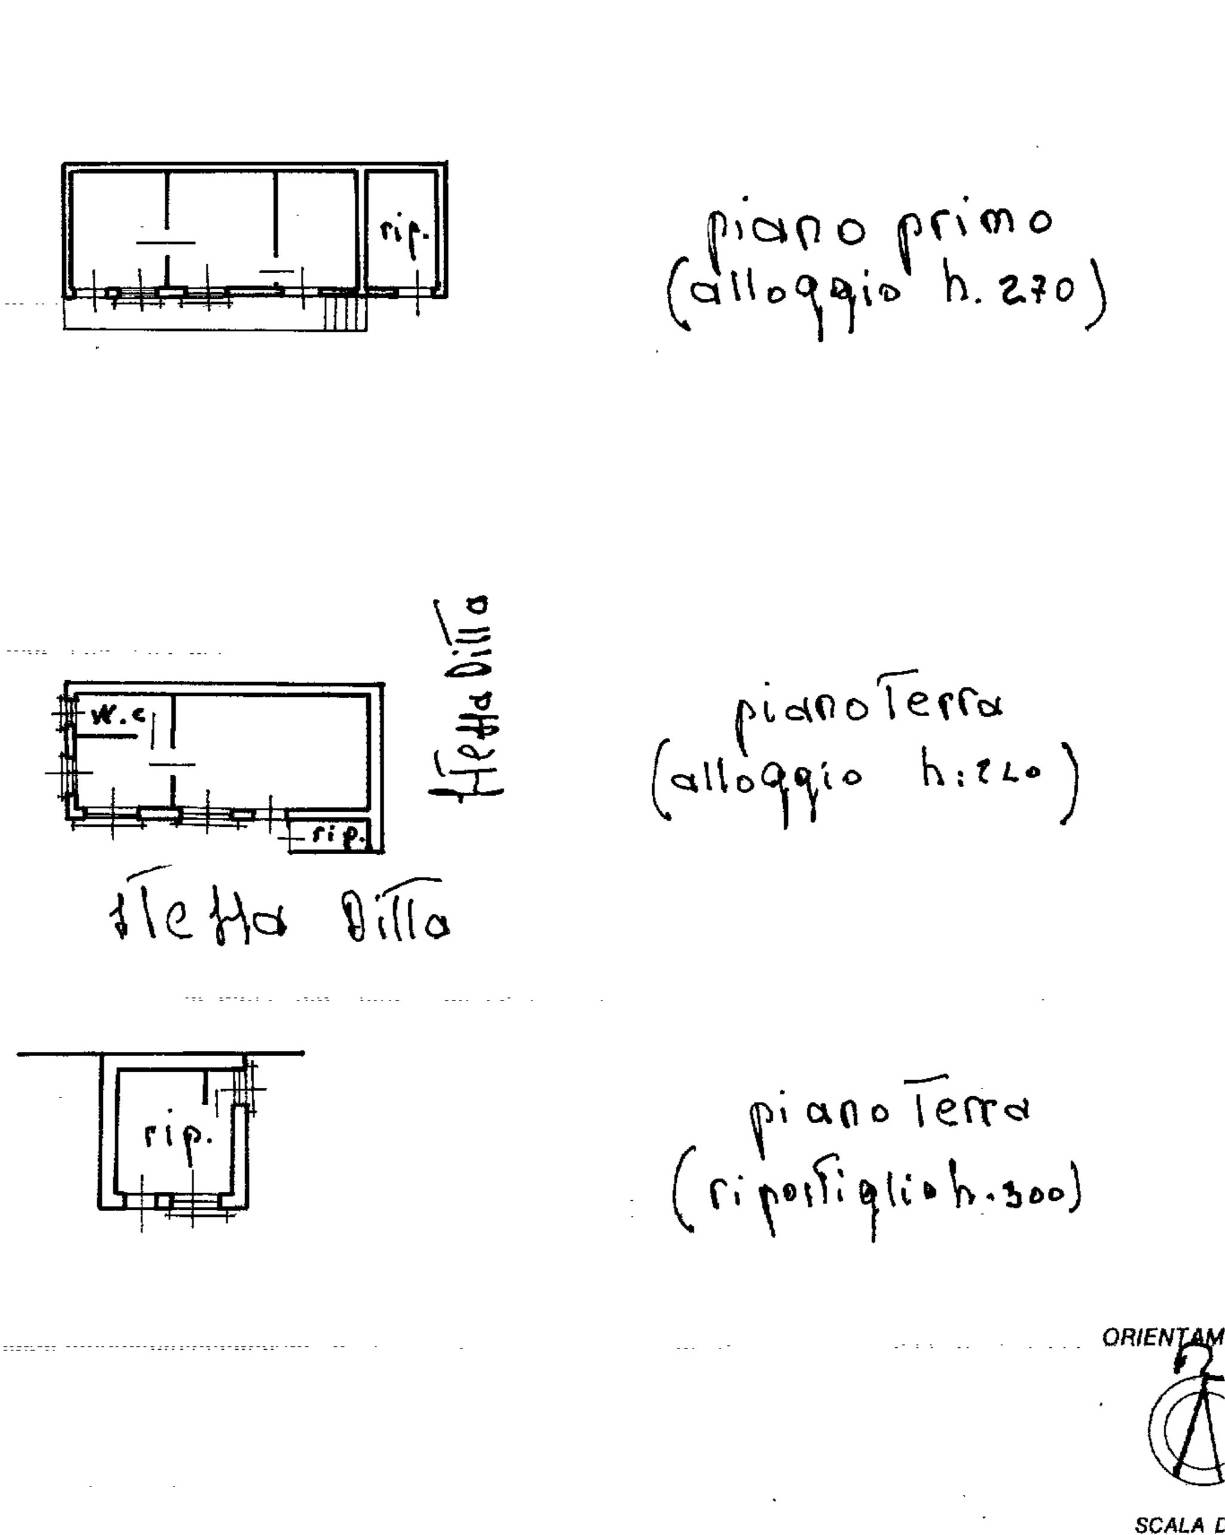 rip.
piano primo
(alloggio h. 270)
stessa Ditta
w.c
piano Terra
(alloggio h: 240)
rip.
stessa Ditta
piano Terra
rip.
(ripostiglio h. 300)
ORIENTAM
SCALA D